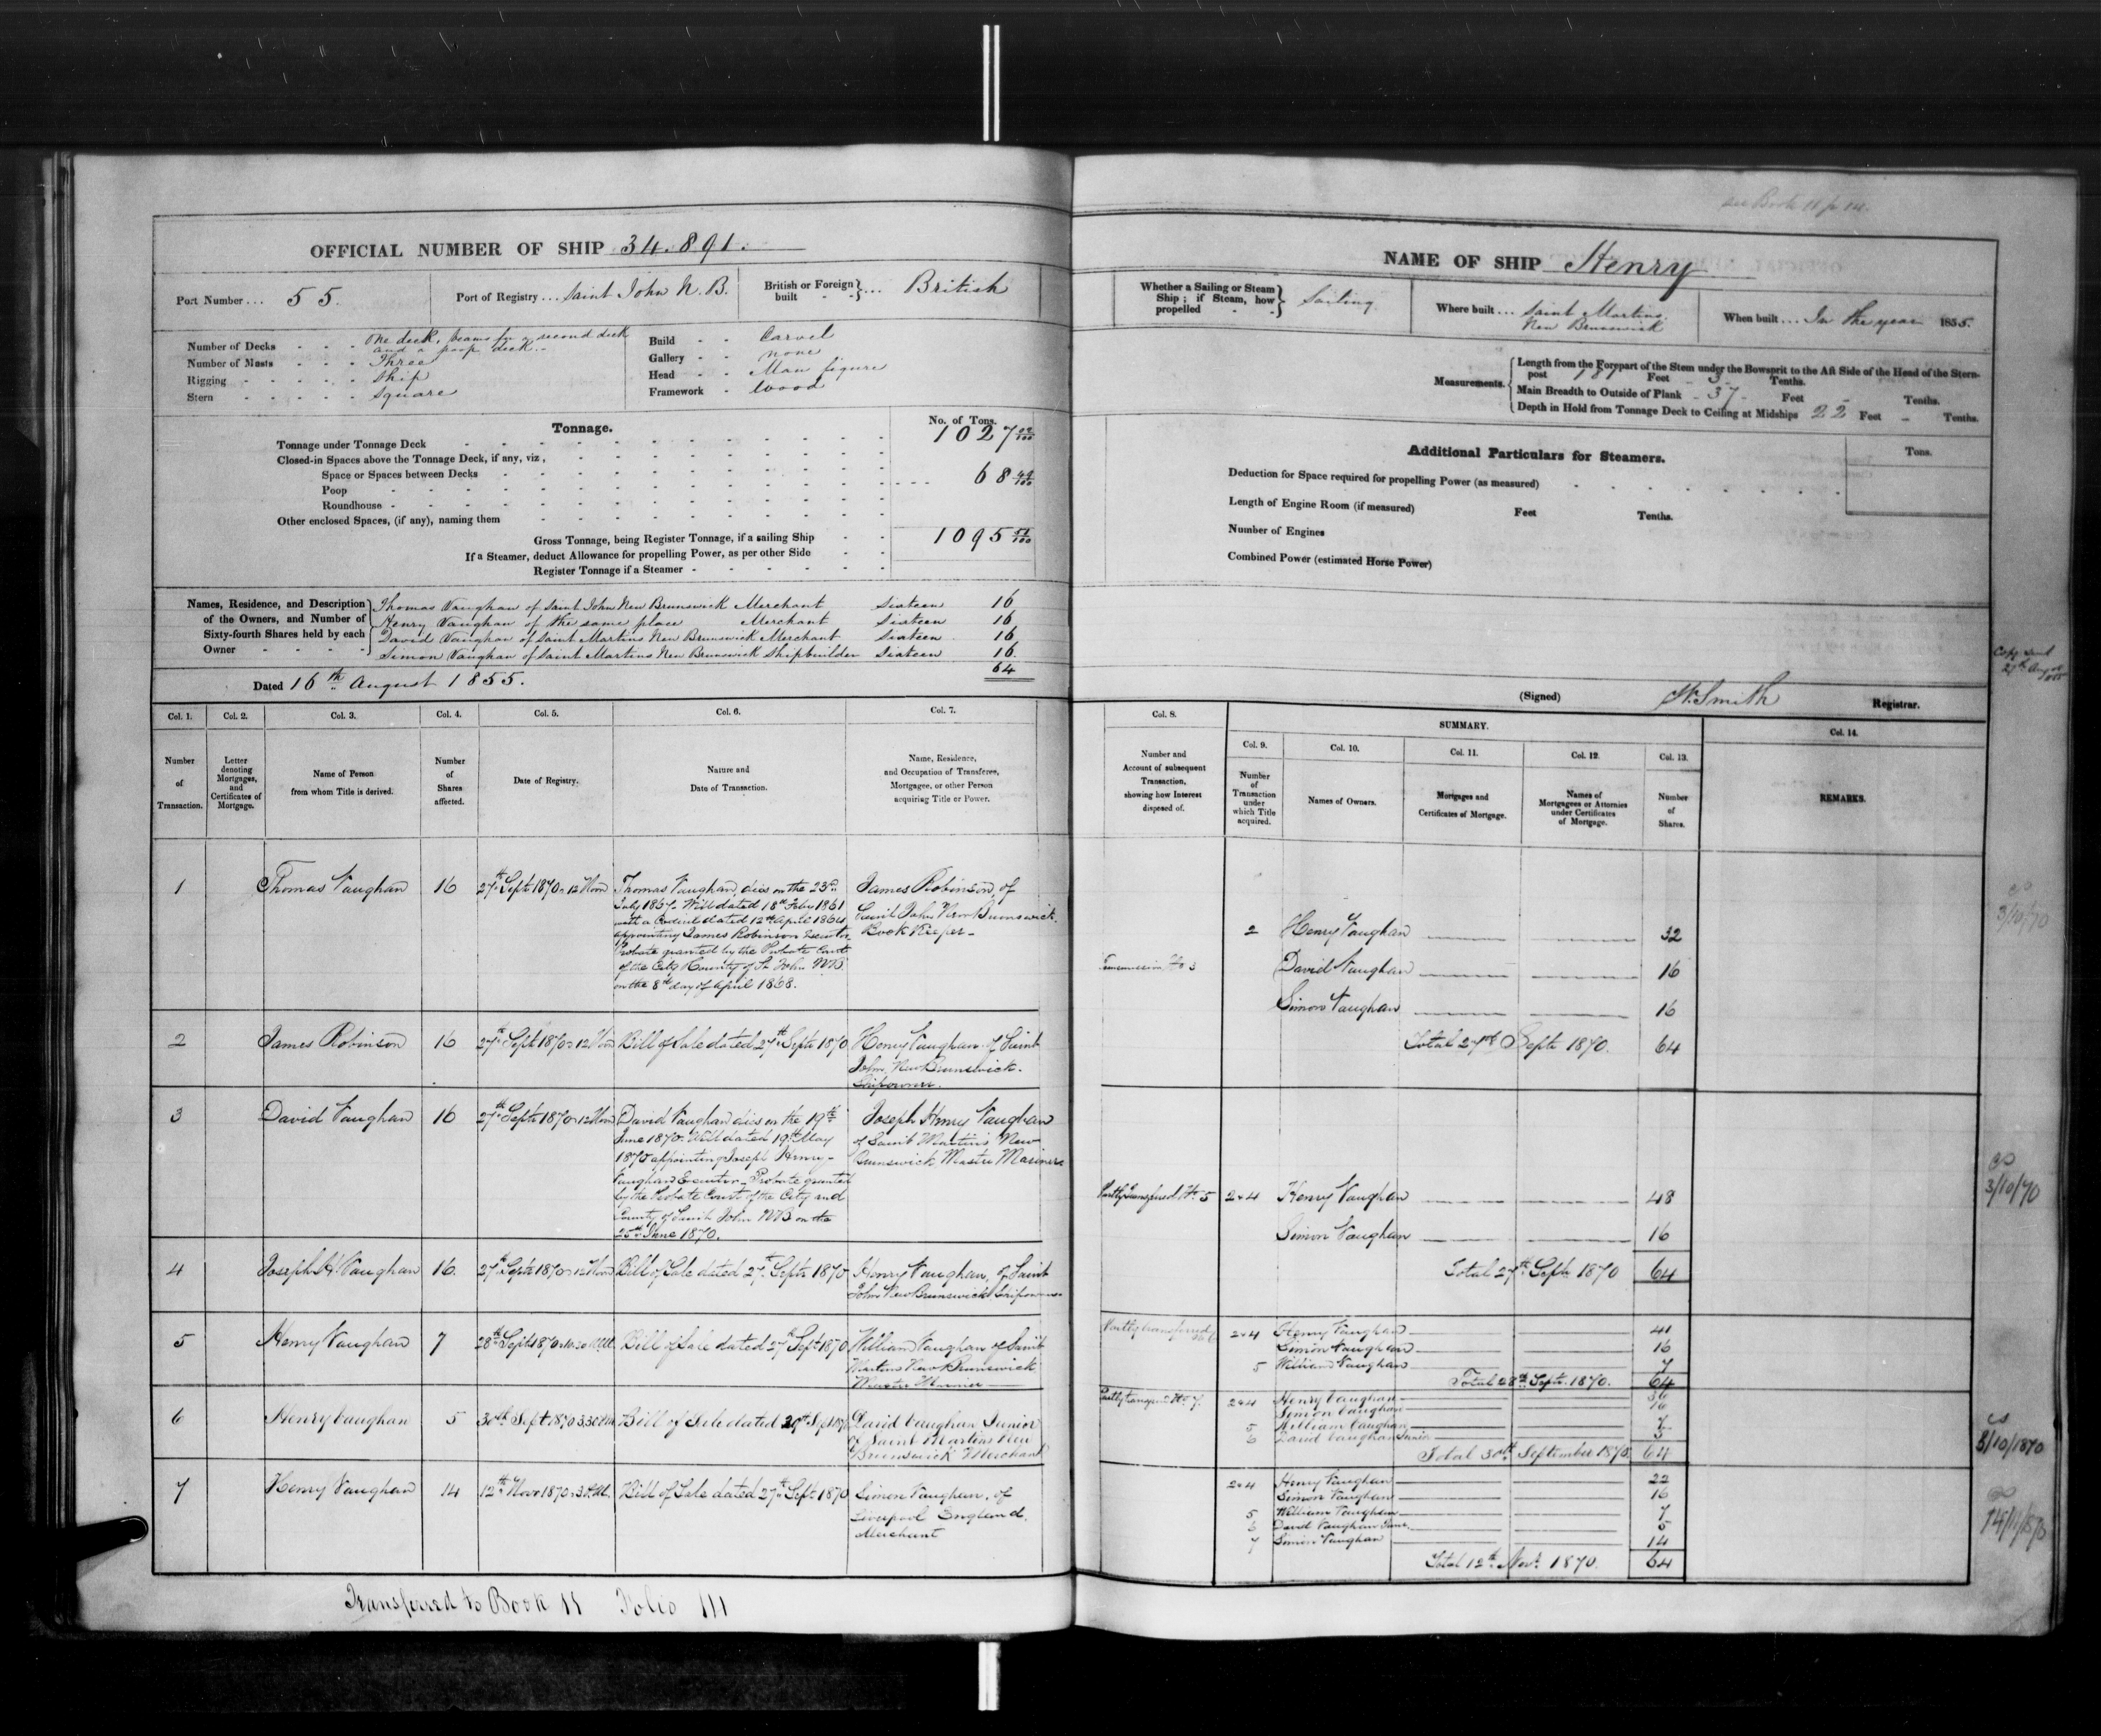 see Book 11 p 111.
OFFICIAL NUMBER OF SHIP 34.891.
Port Number ... 55.
Port of Registry ... Saint John N. B.
British or Foreign built } ... British
Number of Decks - - - One deck, beams for a second deck
and a poop deck.
Number of Masts - - - Three
Rigging - - - - - Ship
Stern - - - - - Square
Build - - Carvel
Gallery - - none
Head - - Man figure
Framework - Wood
Tonnage.
No. of Tons.
Tonnage under Tonnage Deck 1027
Closed-in Spaces above the Tonnage Deck, if any, viz,
Space or Spaces between Decks
Poop 68
Roundhouse
Other enclosed Spaces, (if any), naming them
Gross Tonnage, being Register Tonnage, if a sailing Ship 1095
If a Steamer, deduct Allowance for propelling Power, as per other Side
Register Tonnage if a Steamer
Names, Residence, and Description of the Owners, and Number of Sixty-fourth Shares held by each Owner
Thomas Vaughan of Saint John New Brunswick Merchant Sixteen 16
Henry Vaughan of the same place Merchant Sixteen 16
David Vaughan of Saint Martins New Brunswick Merchant Sixteen 16
Simon Vaughan of Saint Martins New Brunswick Shipbuilder Sixteen 16
64
Dated 16th August 1855.
Col. 1. Col. 2. Col. 3. Col. 4. Col. 5. Col. 6. Col. 7.
Number of Transaction.
Letter denoting Mortgages, and Certificates of Mortgage.
Name of Person from whom Title is derived.
Number of Shares affected.
Date of Registry.
Nature and Date of Transaction.
Name, Residence, and Occupation of Transferee, Mortgagee, or other Person acquiring Title or Power.
1 Thomas Vaughan 16 27th Sept 1870 12 Noon
Thomas Vaughan, dies on the 23rd
July 1867. Will dated 18th Feby 1861
with a Codicil dated 12th April 1864
appointing James Robinson Executor
Probate granted by the Probate Court
of the City & County of St John NB
on the 8th day of April 1868.
James Robinson, of
Saint John New Brunswick.
Book Keeper
2 James Robinson 16 27th Sept 1870 12 Noon Bill of Sale dated 27th Septr 1870
Henry Vaughan of Saint
John, New Brunswick.
Shipowner.
3 David Vaughan 16 27th Septr 1870 12 Noon
David Vaughan dies on the 19th
June 1870. Will dated 19th May
1870 appointing Joseph Henry
Vaughan Executor. Probate granted
by the Probate Court of the City and
County of Saint John NB on the
25th June 1870.
Joseph Henry Vaughan
of Saint Martins New
Brunswick Master Mariner
4 Joseph H. Vaughan 16. 27th Septr 1870 12 Noon Bill of Sale dated 27th Septr 1870
Henry Vaughan, of Saint
John New Brunswick Shipowner
5 Henry Vaughan 7 28th Sept 1870 Bill of Sale dated 27th Sept 1870
William Vaughan of Saint
Martins New Brunswick
Master Mariner
6 Henry Vaughan 5 30th Sept 1870 3.30 Bill of Sale dated 29th Sept 1870
David Vaughan Junior
of Saint Martins New
Brunswick Merchant
7 Henry Vaughan 14 12th Novr 1870 Bill of Sale dated 27th Sept 1870
Simon Vaughan, of
Liverpool England.
Merchant
Transferred to Book 11 Folio 111
NAME OF SHIP Henry
Whether a Sailing or Steam Ship; if Steam, how propelled } Sailing
Where built ... Saint Martins.
New Brunswick
When built ... In the year 1855.
Measurements.
Length from the Forepart of the Stem under the Bowsprit to the Aft Side of the Head of the Stern-
post 187 Feet 3 Tenths.
Main Breadth to Outside of Plank - 37 - Feet - Tenths.
Depth in Hold from Tonnage Deck to Ceiling at Midships 22 Feet - Tenths.
Additional Particulars for Steamers.
Tons.
Deduction for Space required for propelling Power (as measured)
Length of Engine Room (if measured) Feet Tenths.
Number of Engines
Combined Power (estimated Horse Power)
Copy sent
(Signed) W. Smith Registrar.
Col. 8. SUMMARY. Col. 14.
Col. 9. Col. 10. Col. 11. Col. 12. Col. 13.
Number and Account of subsequent Transaction, showing how Interest disposed of.
Number of Transaction under which Title acquired.
Names of Owners.
Mortgages and Certificates of Mortgage.
Names of Mortgagees or Attornies under Certificates of Mortgage.
Number of Shares.
REMARKS.
2 Henry Vaughan 32
Transmission No 3 David Vaughan 16
Simon Vaughan 16
Total 27th Septr 1870. 64
3/10/70
Partly Transferred No 5 2+4 Henry Vaughan 48
Simon Vaughan 16
Total 27th Septr 1870 64
3/10/70
Partly transferred 2+4 Henry Vaughan 41
Simon Vaughan 16
5 William Vaughan 7
Total 28th Septr. 1870. 64
Partly transferred No 7. 2+4 Henry Vaughan 36
Simon Vaughan 16
5 William Vaughan 7
6 David Vaughan Junior 5
Total 30th September 1870 64
3/10/1870
2+4 Henry Vaughan 22
Simon Vaughan 16
5 William Vaughan 7
6 David Vaughan Junr. 5
7 Simon Vaughan 14
Total 12th Novr. 1870. 64